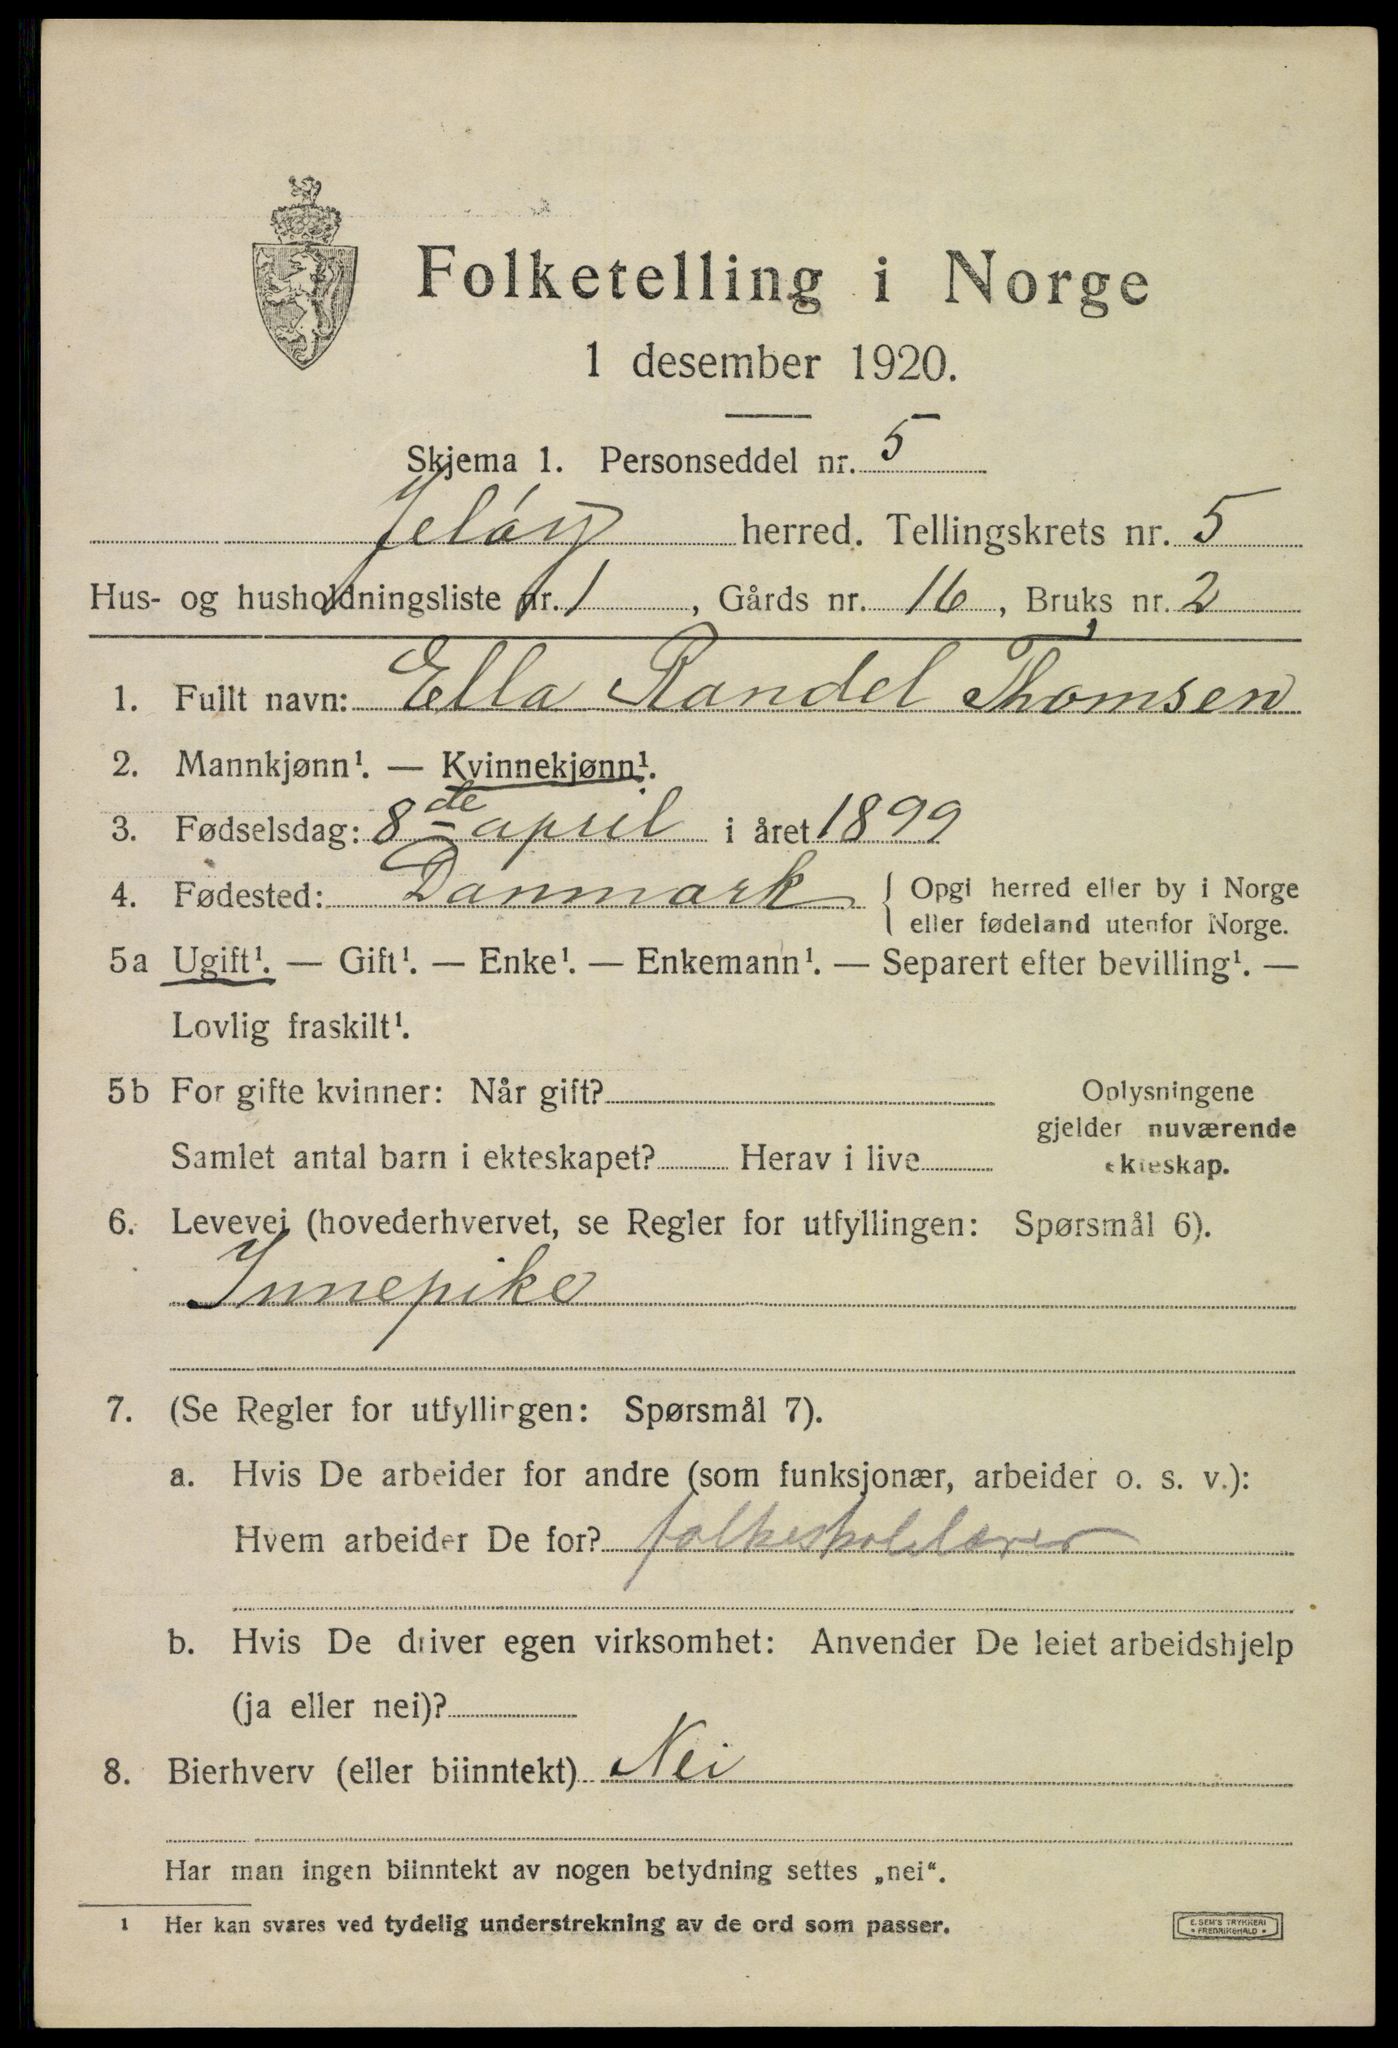 Folketelling i Norge
1 desember 1920.
Skjema 1. Personseddel nr. 5
Jeløy herred. Tellingskrets nr. 5
Hus- og husholdningsliste nr. 1, Gårds nr. 16, Bruks nr. 2
1. Fullt navn: Ella Randel Thomsen
2. Mannkjønn¹. — Kvinnekjønn¹.
3. Fødselsdag: 8de april i året 1899
4. Fødested: Danmark { Opgi herred eller by i Norge
eller fødeland utenfor Norge.
5a Ugift¹. — Gift¹. — Enke¹. — Enkemann¹. — Separert efter bevilling¹. —
Lovlig fraskilt¹.
5b For gifte kvinner: Når gift? Oplysningene
gjelder nuværende
Samlet antal barn i ekteskapet? Herav i live ekteskap.
6. Levevei (hovederhvervet, se Regler for utfyllingen: Spørsmål 6).
Innepike
7. (Se Regler for utfyllingen: Spørsmål 7).
a. Hvis De arbeider for andre (som funksjonær, arbeider o. s. v.):
Hvem arbeider De for? folkeskolelærer
b. Hvis De driver egen virksomhet: Anvender De leiet arbeidshjelp
(ja eller nei)?
8. Bierhverv (eller biinntekt) Nei
Har man ingen biinntekt av nogen betydning settes „nei“.
1 Her kan svares ved tydelig understrekning av de ord som passer.
E. SEM'S TRYKKERI
• FREDRIKSHALD •